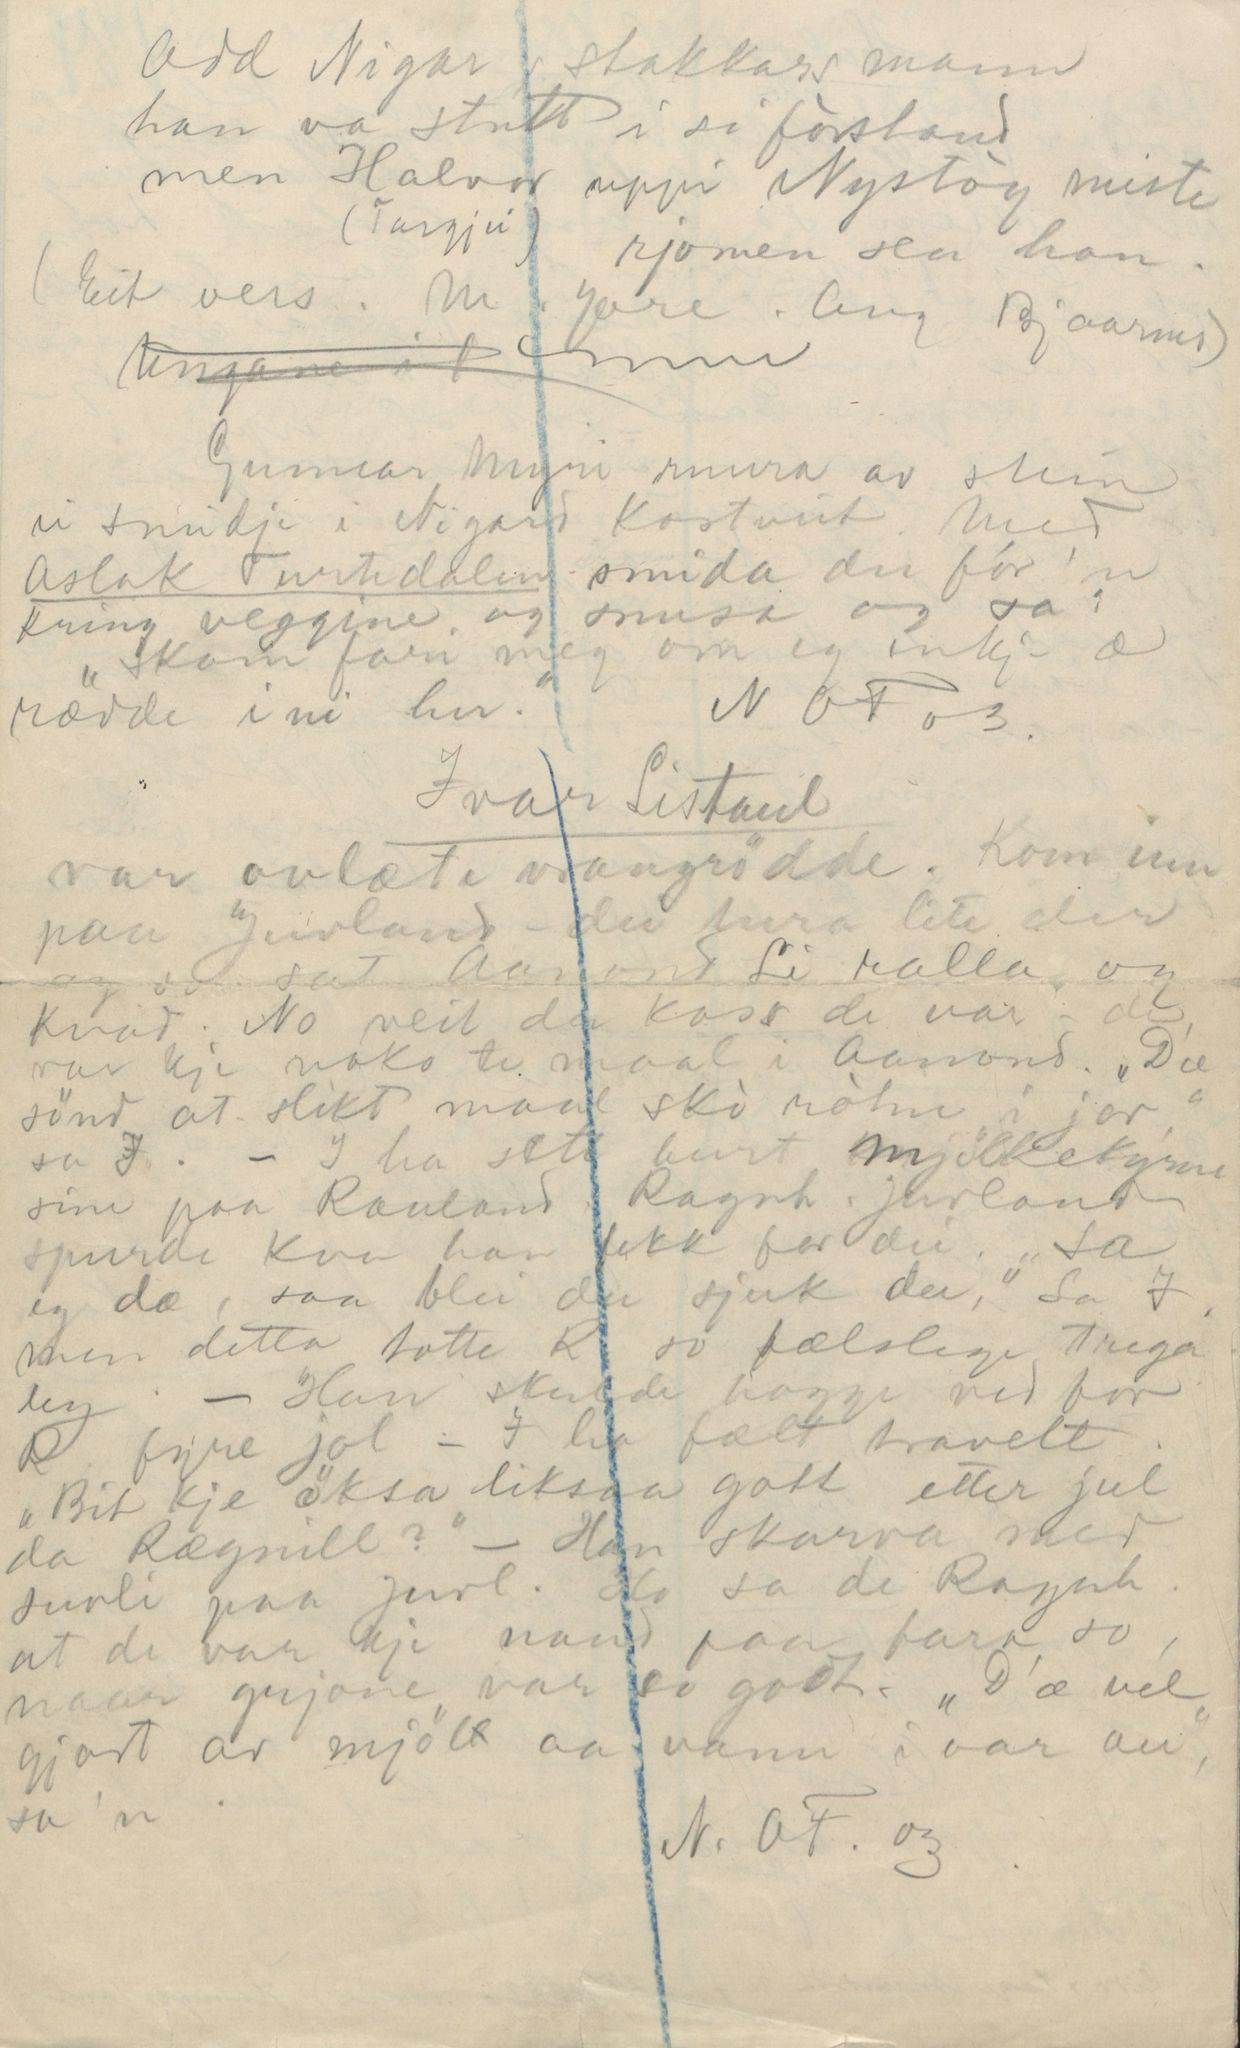 Odd Nigar, stakkars mann
han va stutt i si forstand
men Halvor uppi Nystög miste
(Targjei) rjomen sea han.
(Eit vers. M. Jore. Aug Bjaarnes)
Ungane i
Gunnar Myri mura av stein
ei smidje i Nigard Kostveit. Med
Aslak Turtedalen smida der fór'n
kring veggine, og snusa og sa:
„Skam fari meg om eg inkje æ
rædde inni her." N OT 03.
Ivar Listaul
var ovlæte vrangrödde. Kom inn
paa Jurland - dei tura lite der
og so sat Aamond Li ralla, og
kvad. No veit du koss de var - de
var kje noko te maal i Aamond. „D'æ
sönd at slikt maal skò ròtne i jor,"
sa I. - I ha sett burt mjölkekyrne
sine paa Rauland. Ragnh. Jurland
spurde kva han fekk for dei. „Sa
eg dæ, saa blei du sjuk du," sa I.
men detta totte R so fælslege trega
leg - Han skulde hogge ved for
R. fyre jol - I ha fælt travelt.
„Bit kje öksa liksaa gott etter jul
da Rægnill?" - Han skarva med
survli paa Jurl. Ho sa de Ragnh.
at de var kje naud paa fara so,
naar grjone var so godt. „D'æ vel
gjort av mjölk aa vann i vaar au",
sa'n.
N. OT. 03.